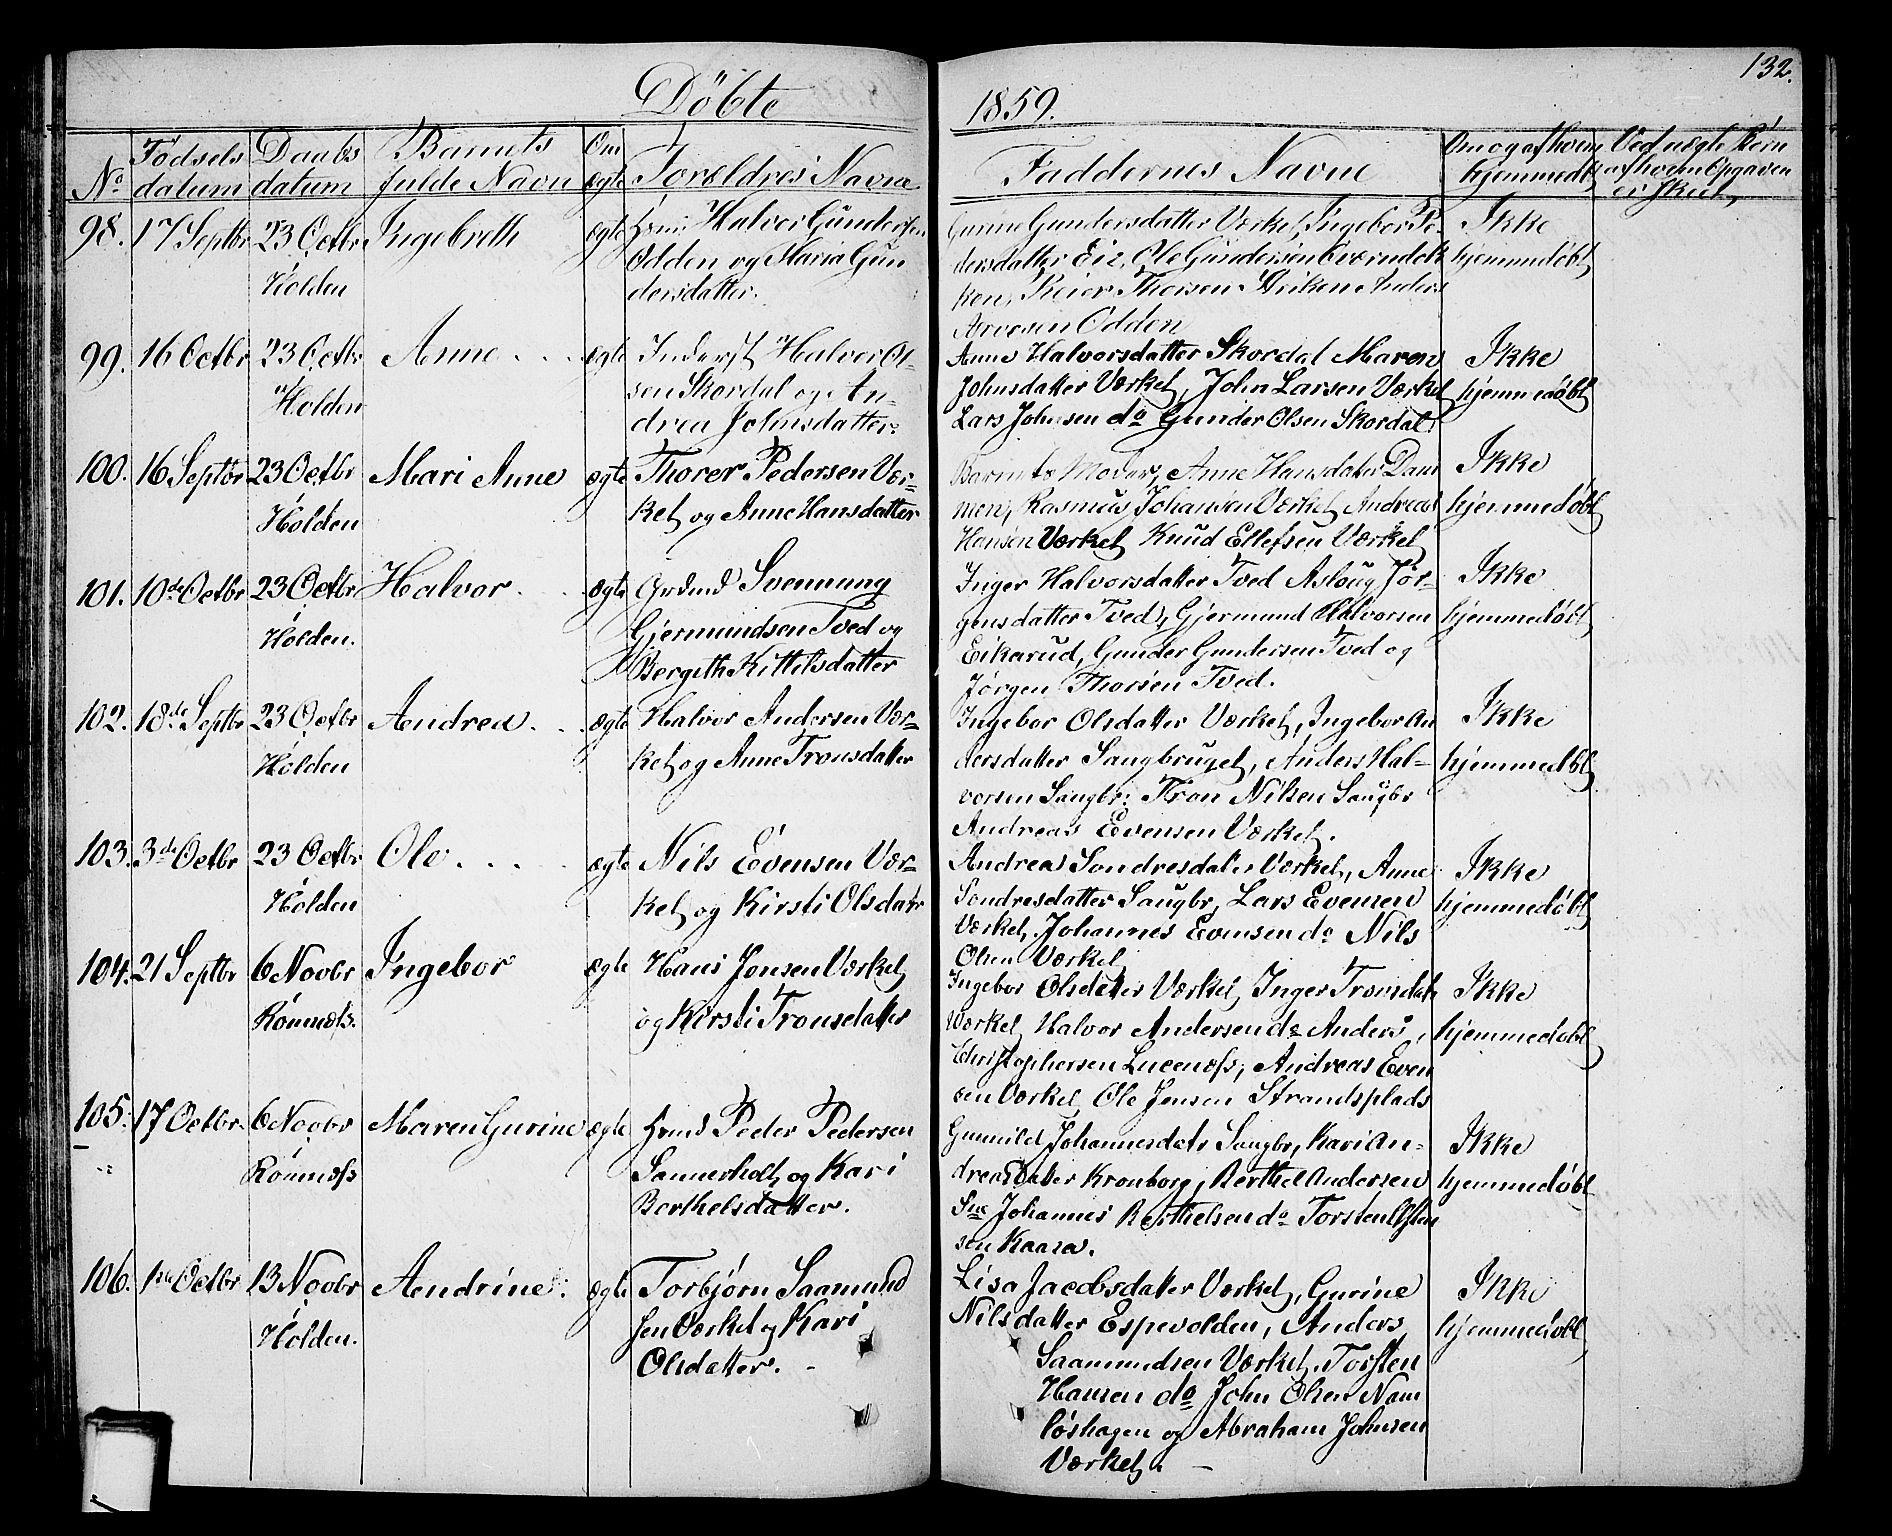 132.
Döbte
1859.
No.
Födsels datum
Daabs datum
Barnets fulde Navn
Om ægte
Forældres Navne
Faddernes Navne
Om og af hvem hjemmedt.
Ved uægte Børn af hvem Opgaven er skeet
98. 17 Septbr 23 Octbr Ingebreth ægte Halvor Gundersen
i Holden
Odden og Maria Gun
dersdatter.
Gurine Gundersdatter Værket, Ingebor Pe-
dersdatter Eie, Ole Gundersen
ken, Reier Thorsen Anders
Arvesen Odden
Ikke
hjemmedøbt
99. 16 Octbr 23 Octbr Anne ægte Inderst Halvor Ol-
i Holden
sen Skordal og An-
drea Johnsdatter.
Anne Halvorsdatter Skordal Maren
Johnsdatter Værket, John Larsen Værket
Lars Johnsen do Gunder Olsen Skordal.
Ikke
hjemmedøbt
100. 16 Septbr 23 Octbr Mari Anne ægte Thorer Pedersen Vær-
i Holden
ket og Anne Hansdatter
Barnets Moder, Anne Hansdater Dam
men, Rasmus Johansen Værket Andreas
Hansen Værket Knud Ellefsen Værket
Ikke
hjemmedøbt
101. 10de Octbr 23 Octbr Halvor ægte Grdmd Svennung
i Holden.
Gjermundsen Tved og
Bergith Kittilsdatter
Inger Halvorsdatter Tved Aslaug Jør-
gensdatter Tved, Gjermund Halvorsen
Eikarud, Gunder Gundersen Tved og
Jørgen Thorsen Tved.
Ikke
hjemmedøbt
102. 18de Septbr 23 Octbr Andrea ægte Halvor Andersen Vær-
i Holden
ket og Anne Tronsdatter
Ingebor Olsdatter Værket, Ingebor An
dersdatter Saugbruget, Anders Hal-
vorsen Saugbr: Tron Nilsen Saugbr
Andreas Evensen Værket.
Ikke
hjemmedbt
103. 3de Octbr 23 Octbr Ole ægte Nils Evensen Vær-
i Holden
ket og Kirsti Olsdatr
Andrea Sondresdater Værket, Anne
Sondresdatter Saugbr, Lars Evensen
Værket, Johannes Evensen do Nils
Olsen Værket
Ikke
hjemmedøbt
104. 21 Septbr 6 Novbr Ingebor ægte Hans Jensen Værket
i Rönnæfs.
og Kirsti Tronsdatter
Ingebor Olsdatter Værket, Inger Tronsdatr
Værket, Halvor Andersen do Anders
Christophersen Lucenæfs, Andreas Even
sen Værket, Ole Jensen Strandsplads
Ikke
hjemmedøbt
105. 17 Octbr 6 Novbr Maren Gurine ægte Grmd Peder Pedersen
i Rönnæfs
Sannerholt og Kari
Berthelsdatter.
Gunnild Johannesdatr Saugbr, Kari An-
dreasdatter Kronborg, Berthel Andersen
Johannes Berthelsen do Torsten
sen Kaasa.
Ikke
hjemmedøbt
106. 1ste Octbr 13 Novbr Andrine ægte Torbjørn Saamund
i Holden.
sen Værket og Kari
Olsdatter.
Lisa Jacobsdatter Værket, Gurine
Nilsdatter Espevolden, Anders
Saamundsen Værket, Torsten
Hansen do John Olsen Nam
løshagen og Abraham Johnsen
Værket.
Ikke
hjemmedøbt